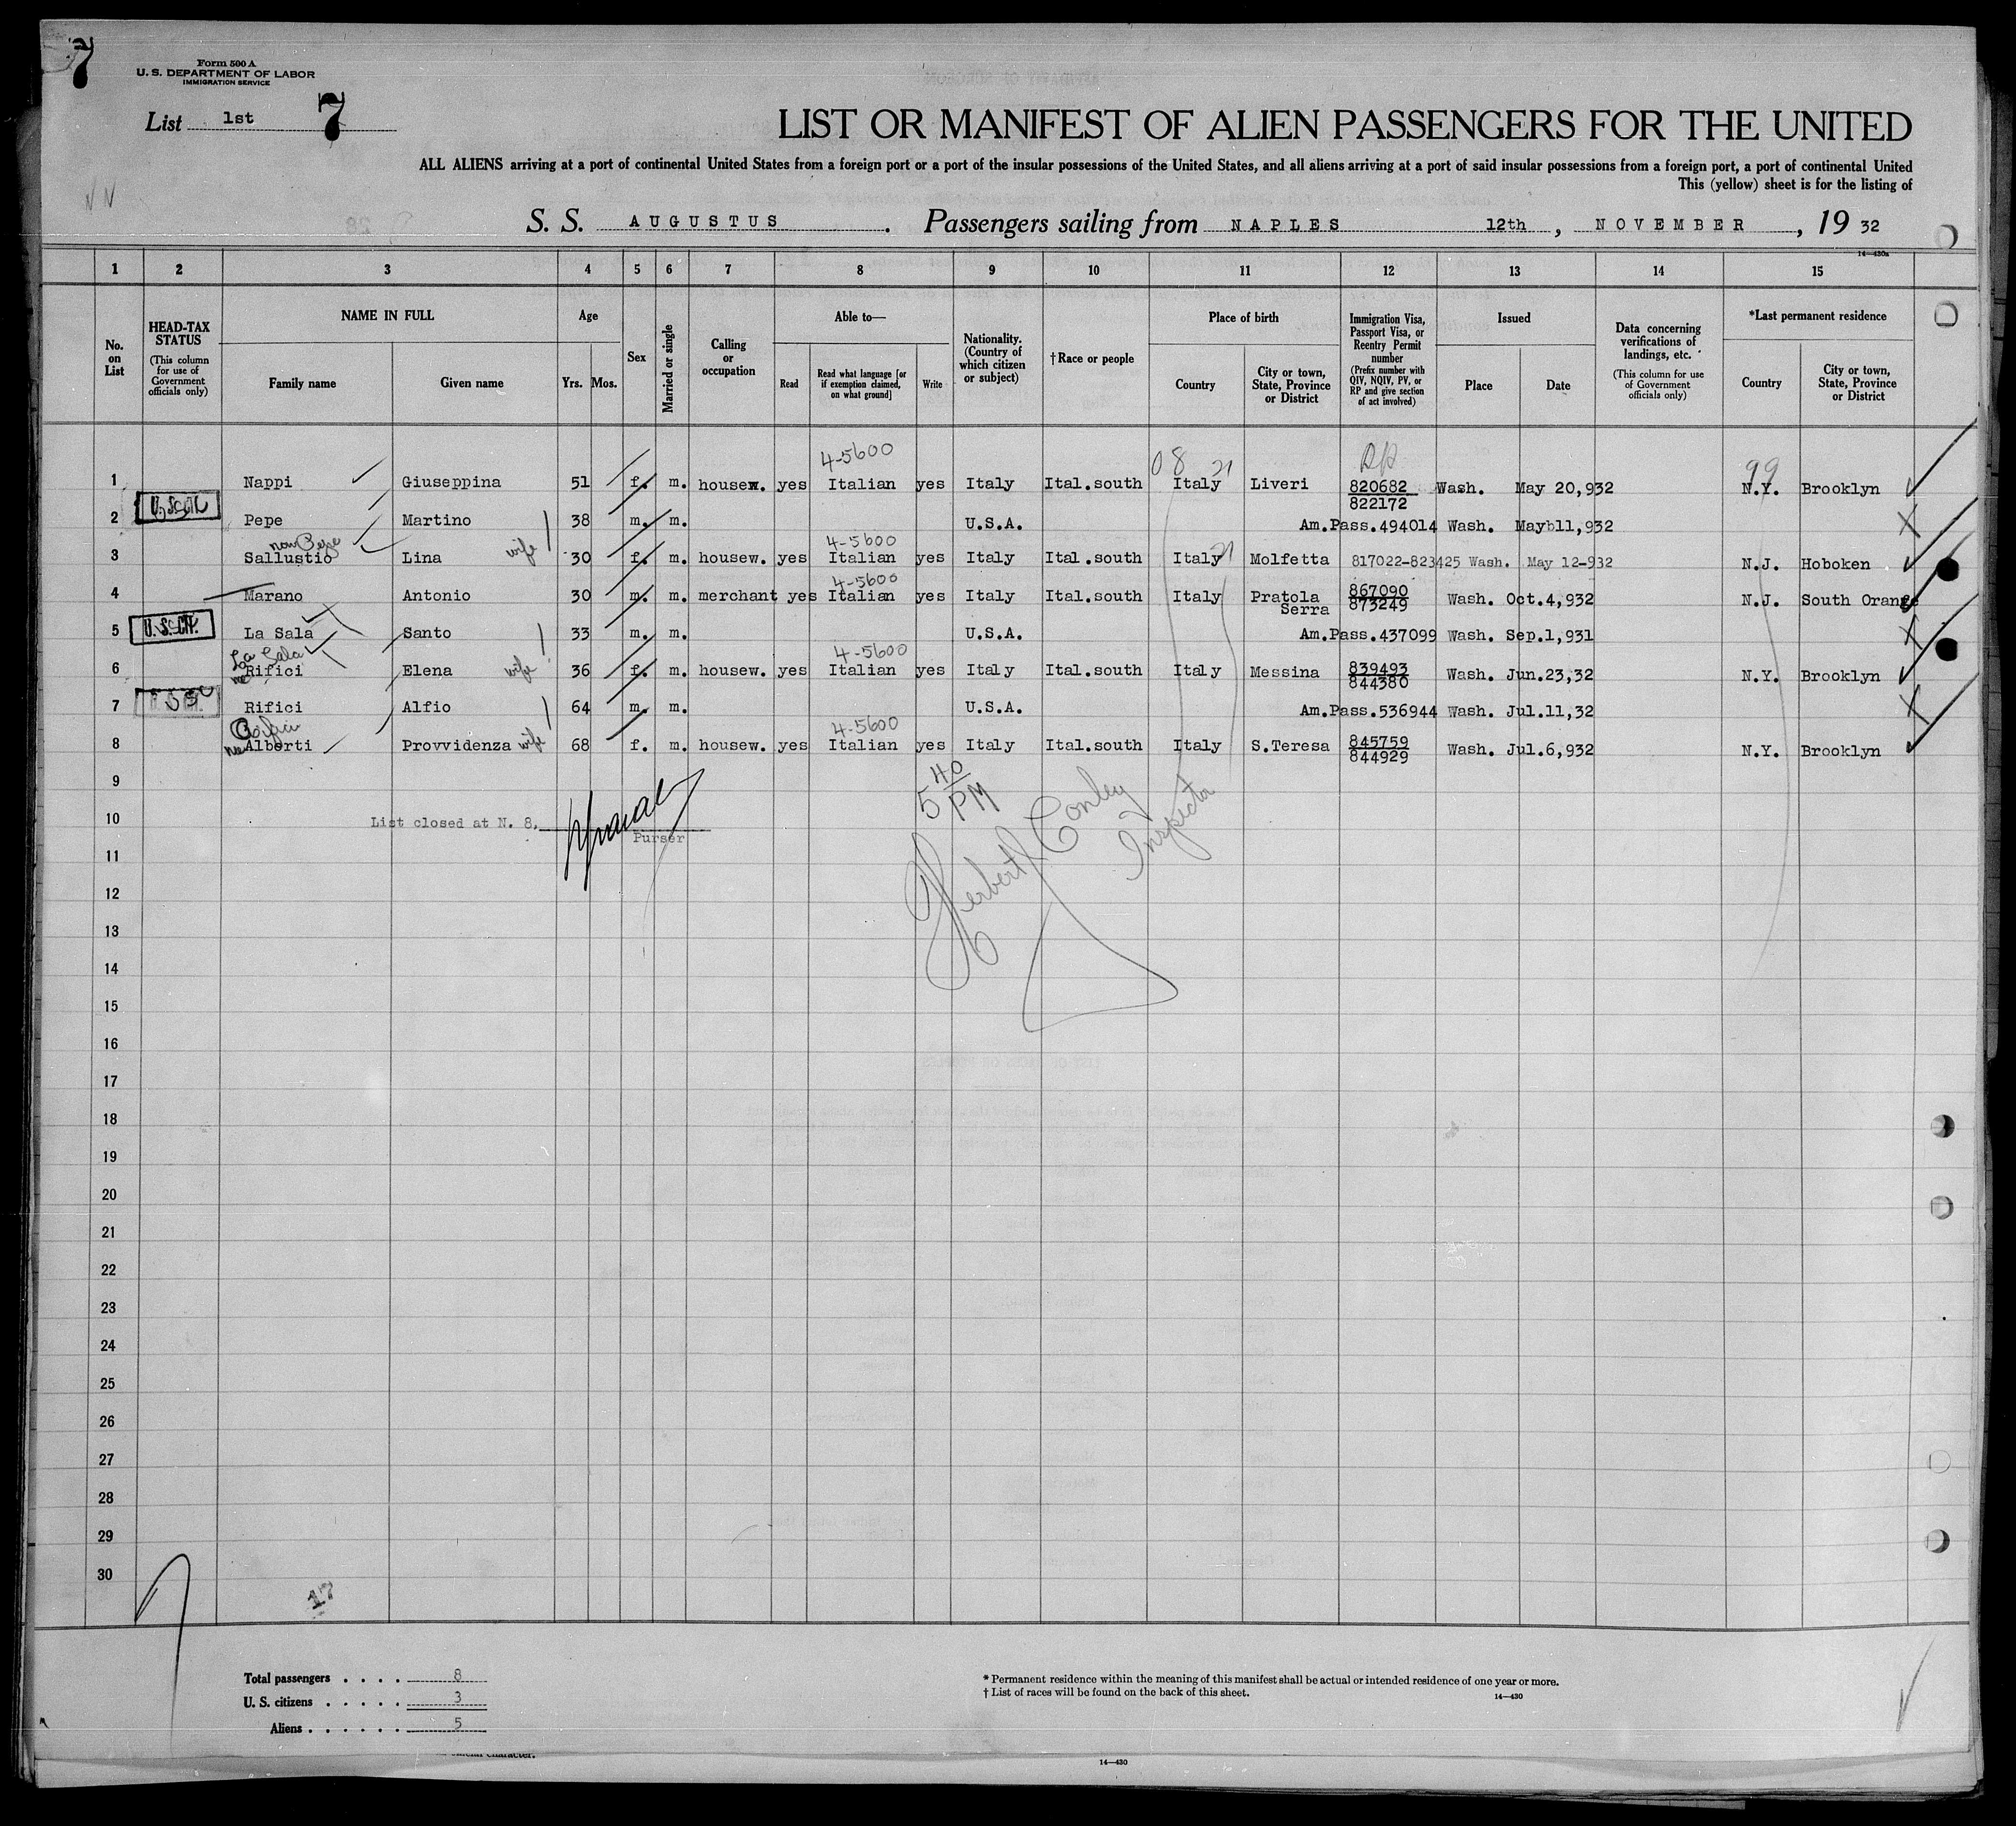 7
Form 500 A
U. S. DEPARTMENT OF LABOR
IMMIGRATION SERVICE
List 1st 7
LIST OR MANIFEST OF ALIEN PASSENGERS FOR THE UNITED
ALL ALIENS arriving at a port of continental United States from a foreign port or a port of the insular possessions of the United States, and all aliens arriving at a port of said insular possessions from a foreign port, a port of continental United
This (yellow) sheet is for the listing of
S. S. AUGUSTUS. Passengers sailing from NAPLES 12th, NOVEMBER, 19 32
14—430a
1 2 3 4 5 6 7 8 9 10 11 12 13 14 15
No. on List
HEAD-TAX STATUS
(This column for use of Government officials only)
NAME IN FULL
Family name Given name
Age
Yrs. Mos.
Sex
Married or single
Calling or occupation
Able to—
Read
Read what language [or if exemption claimed, on what ground]
Write
Nationality. (Country of which citizen or subject)
†Race or people
Place of birth
Country
City or town, State, Province or District
Immigration Visa, Passport Visa, or Reentry Permit number
(Prefix number with QIV, NQIV, PV, or RP and give section of act involved)
Issued
Place Date
Data concerning verifications of landings, etc.
(This column for use of Government officials only)
*Last permanent residence
Country
City or town, State, Province or District
4-5600 08 21 99
1 Nappi Giuseppina 51 f. m. housew. yes Italian yes Italy Ital.south Italy Liveri 820682 Wash. May 20,932 N.Y. Brooklyn
822172
2 Pepe Martino 38 m. m. U.S.A. Am.Pass.494014 Wash. Mayb11,932
now Pepe 4-5600 21
3 Sallustio Lina wife 30 f. m. housew. yes Italian yes Italy Ital.south Italy Molfetta 817022-823425 Wash. May 12-932 N.J. Hoboken
4-5600
4 Marano Antonio 30 m. m. merchant yes Italian yes Italy Ital.south Italy Pratola Serra 867090 Wash. Oct.4,932 N.J. South Orange
873249
U.S.CIT.
5 La Sala Santo 33 m. m. U.S.A. Am.Pass.437099 Wash. Sep.1,931
La Sala 4-5600
6 nee Rifici Elena wife 36 f. m. housew. yes Italian yes Italy Ital.south Italy Messina 839493 Wash. Jun.23,32 N.Y. Brooklyn
844380
7 Rifici Alfio 64 m. m. U.S.A. Am.Pass.536944 Wash. Jul.11,32
4-5600
8 nee Alberti Provvidenza wife 68 f. m. housew. yes Italian yes Italy Ital.south Italy S.Teresa 845759 Wash. Jul.6,932 N.Y. Brooklyn
844929
9
5 40 PM
10 List closed at N. 8,
Purser
Herbert J. Conley
Inspector
11
12
13
14
15
16
17
18
19
20
21
22
23
24
25
26
27
28
29
30
17
Total passengers . . . . 8
U. S. citizens . . . . . 3
Aliens . . . . . . 5
* Permanent residence within the meaning of this manifest shall be actual or intended residence of one year or more.
† List of races will be found on the back of this sheet.
14—430
14—430